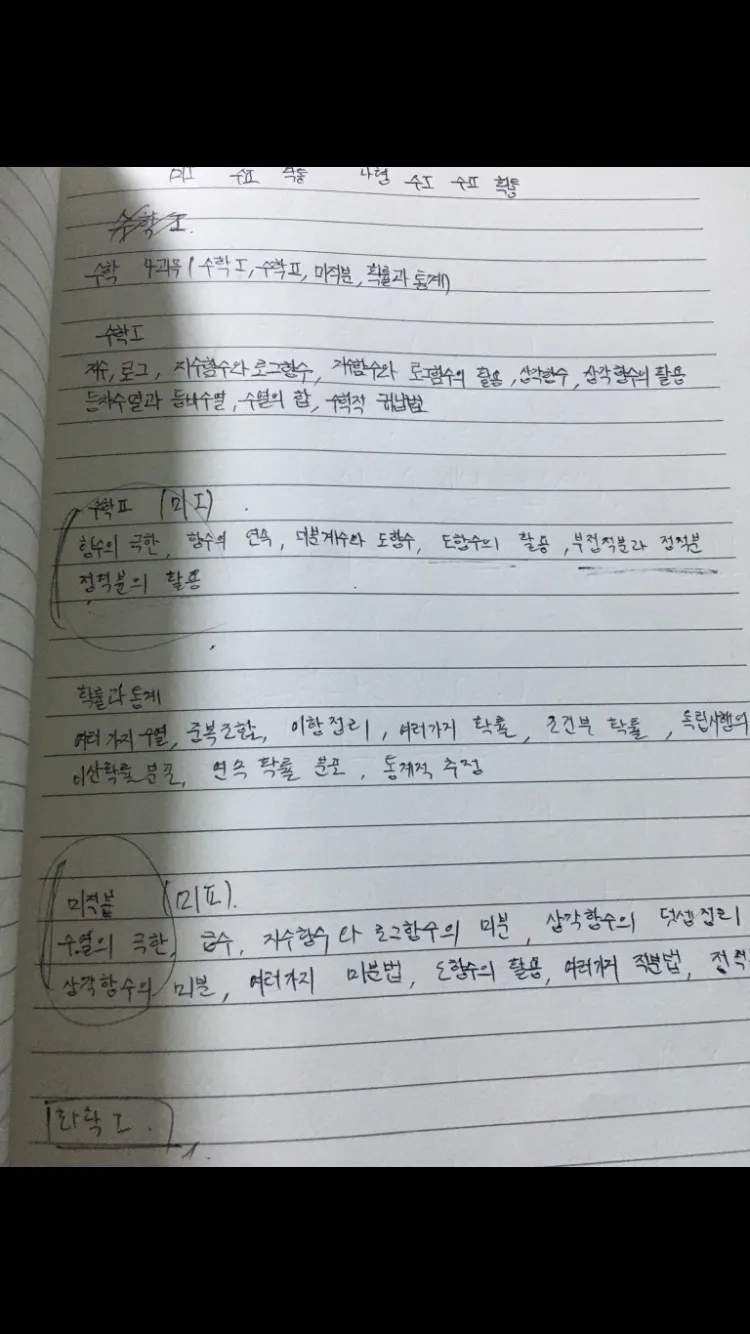 수Ⅱ 확통 나형 수Ⅰ 수Ⅱ 확통
수학Ⅰ.
수학 4과목 (수학Ⅰ, 수학Ⅱ, 미적분, 확률과 통계)
수학Ⅰ
지수, 로그, 지수함수와 로그함수, 지수함수와 로그함수의 활용, 삼각함수, 삼각함수의 활용
등차수열과 등비수열, 수열의 합, 수학적 귀납법
수학Ⅱ (미Ⅰ)
함수의 극한, 함수의 연속, 미분계수와 도함수, 도함수의 활용, 부정적분과 정적분
정적분의 활용
확률과 통계
여러 가지 수열, 중복조합, 이항정리, 여러가지 확률, 조건부 확률, 독립시행의
이산확률 분포, 연속 확률 분포, 통계적 추정
미적분 (미Ⅱ).
수열의 극한, 급수, 지수함수와 로그함수의 미분, 삼각함수의 덧셈정리
삼각함수의 미분, 여러가지 미분법, 도함수의 활용, 여러가지 적분법, 정적
화학Ⅰ.